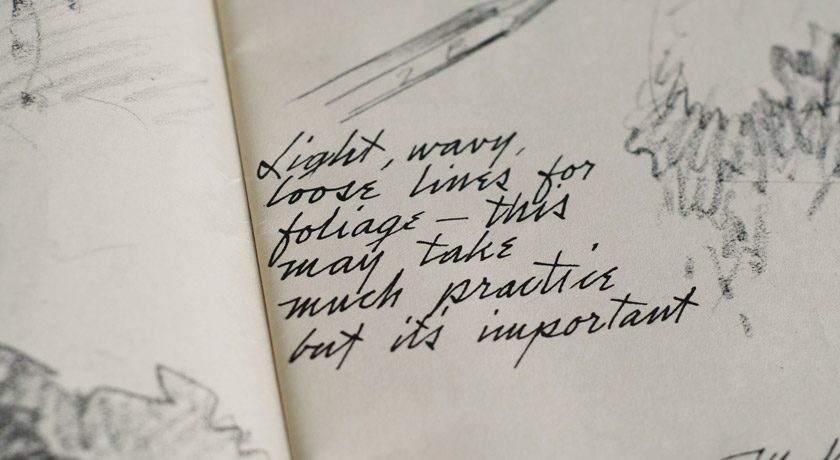 2 B
Light, wavy,
loose lines for
foliage — this
may take
much practice
but it's important